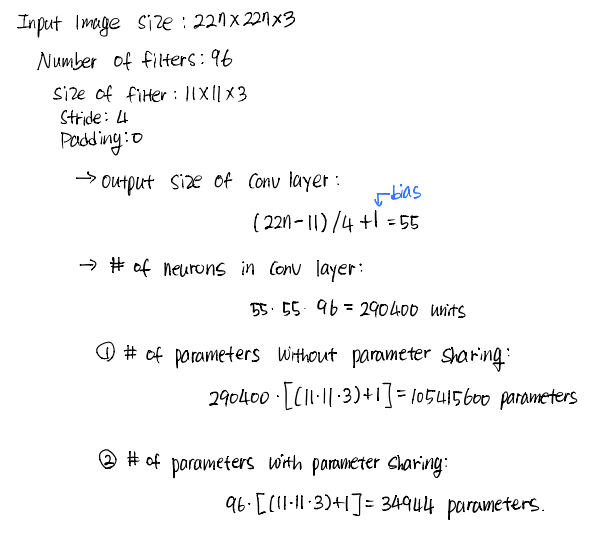 Input Image size : 227×227×3
Number of filters: 96
Size of filter : 11×11×3
Stride: 4
Padding: 0
→ output size of Conv layer :
bias
(227-11)/4 +1 = 55
→ # of neurons in Conv layer:
55 · 55 · 96 = 290400 units
① # of parameters without parameter sharing:
290400 · [(11·11·3)+1] = 105415600 parameters
② # of parameters with parameter sharing:
96 · [(11·11·3)+1] = 34944 parameters.